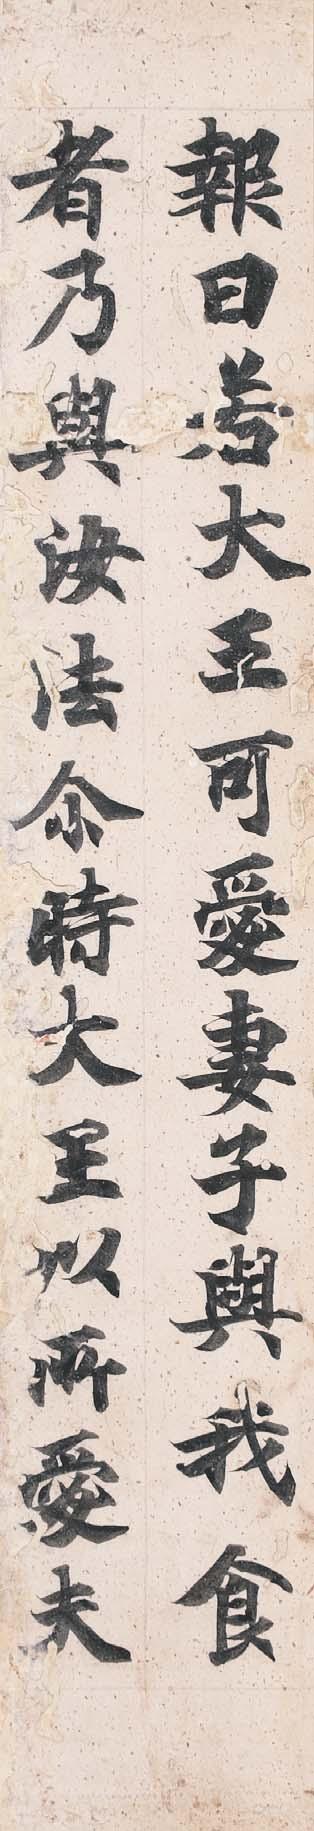 報曰若大王可愛妻子與我食
者乃與汝法尒時大王以所愛夫